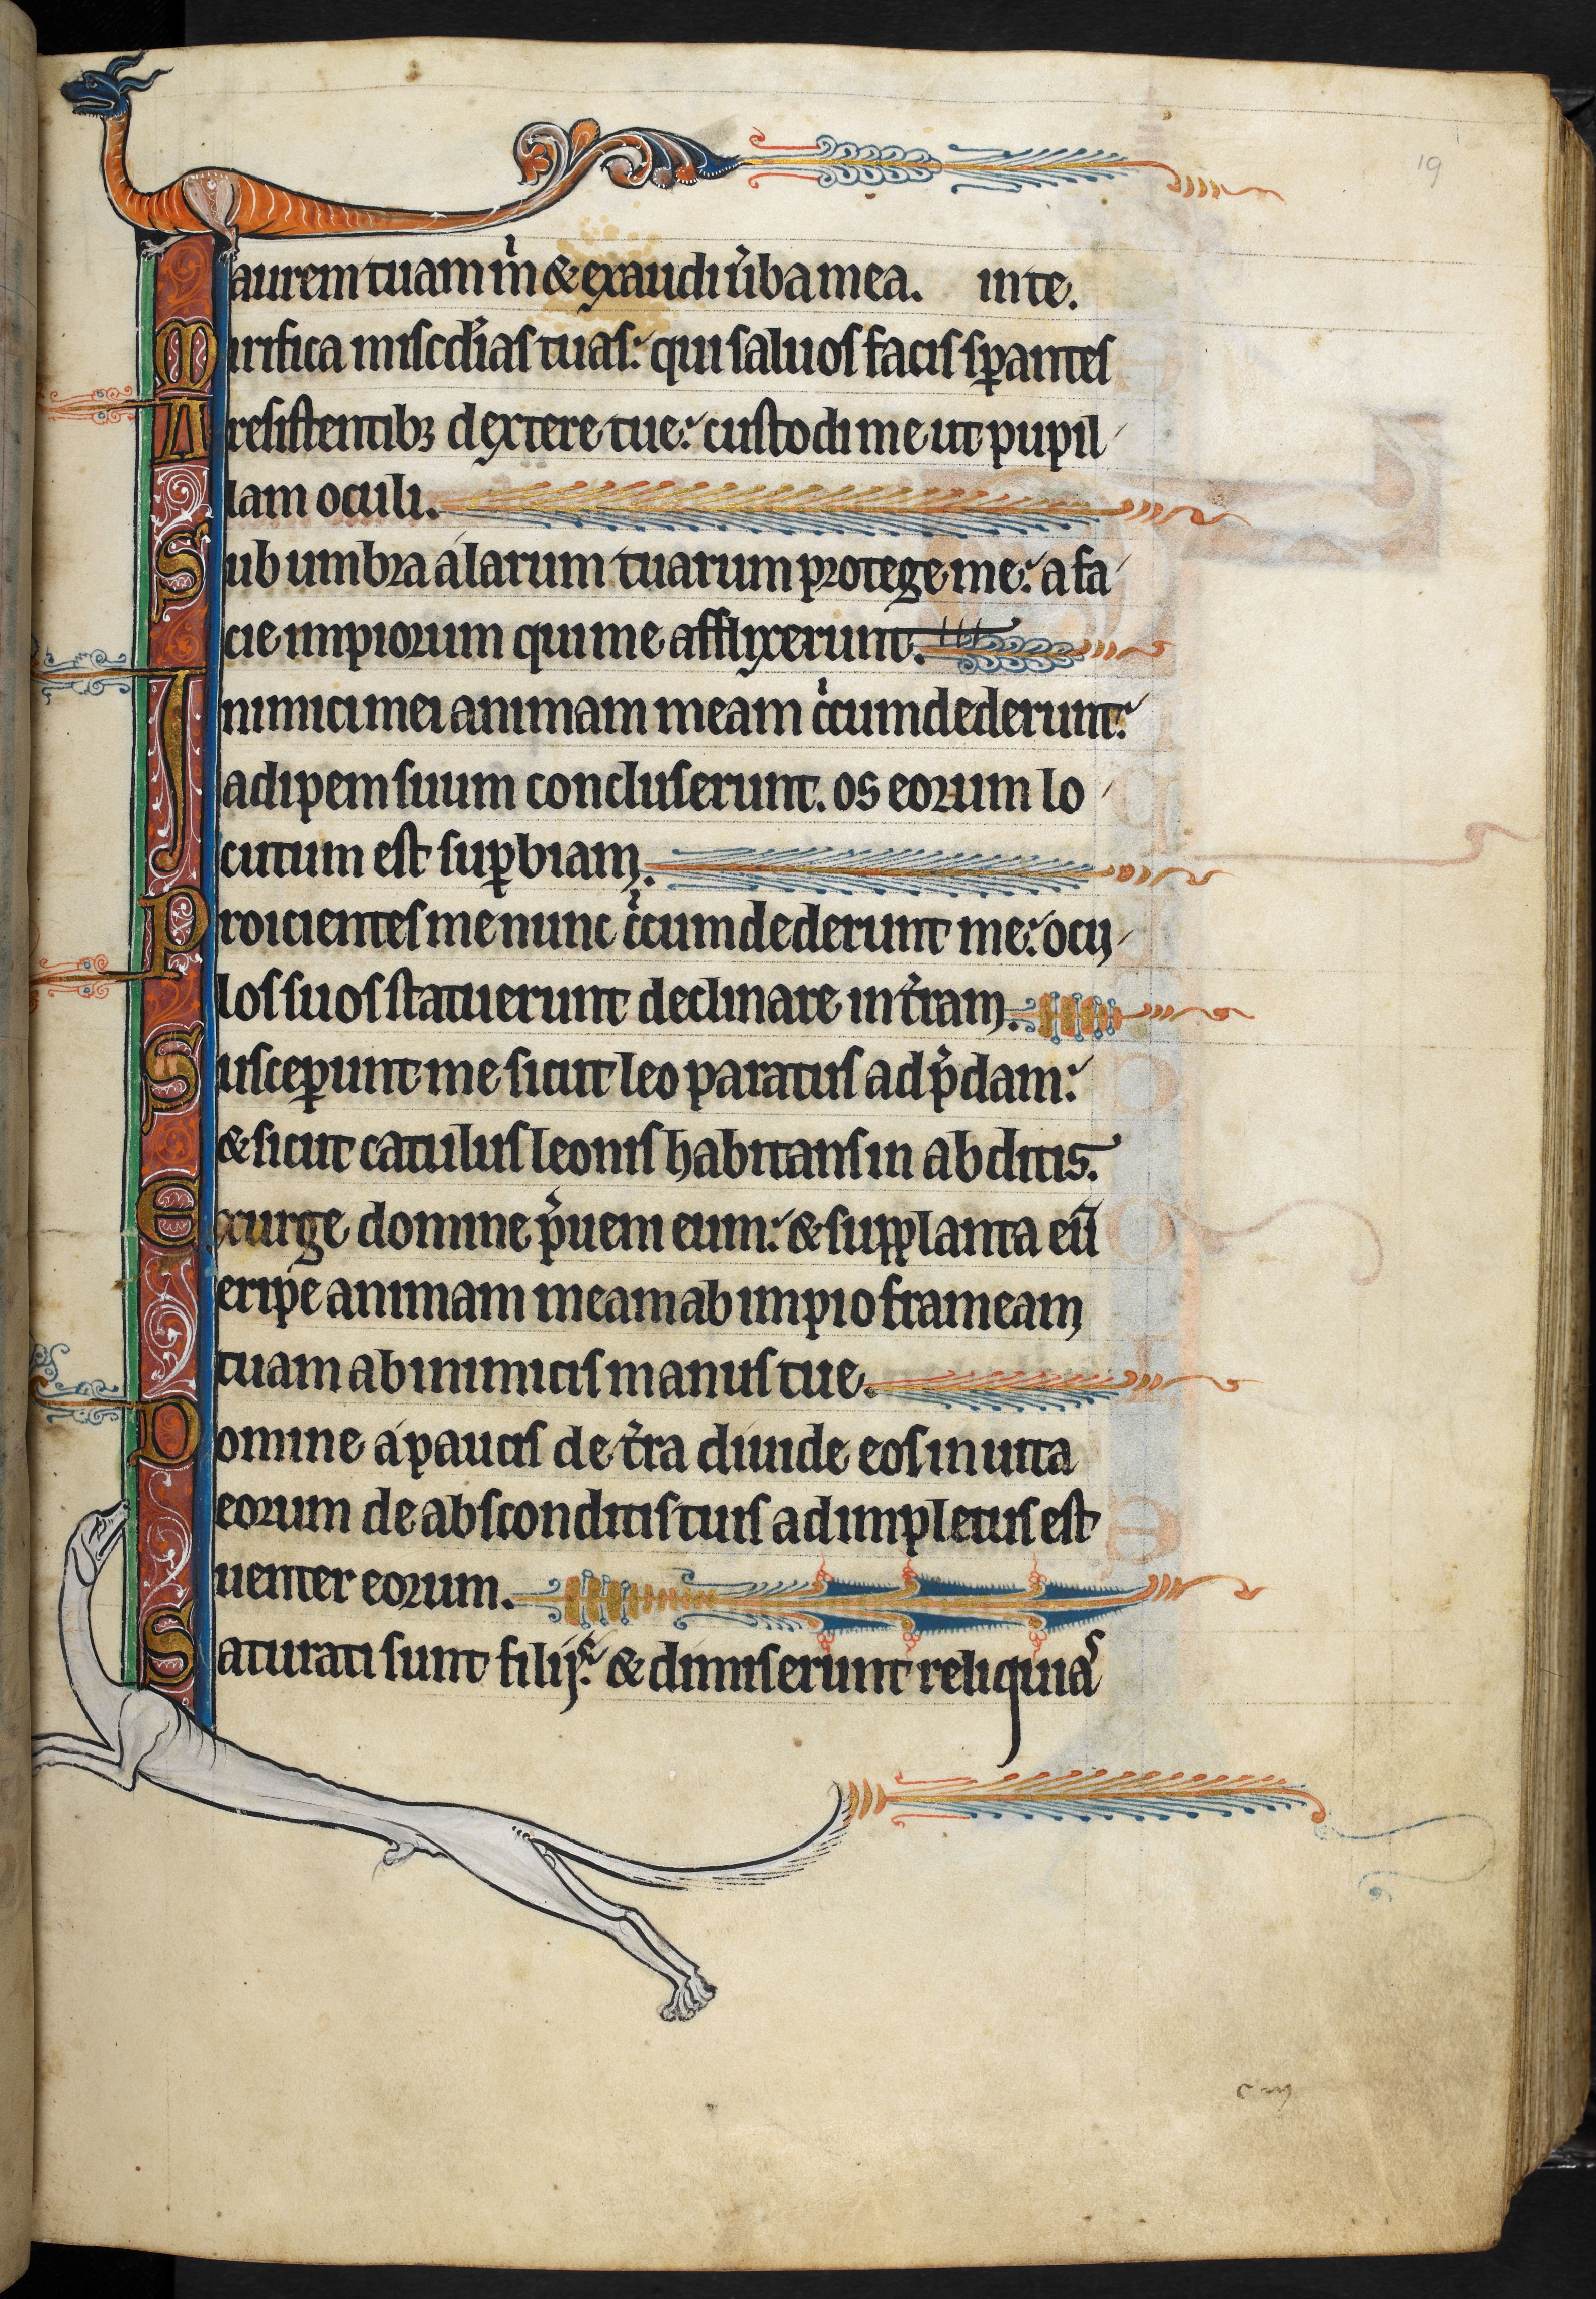 19
aurem tuam m̃ & exaudi u̾ba mea. in te.
Mirifica misc̾dias tuas: qui saluos facis sꝑantes
A resistentibꝫ dextere tue: custodi me ut pupil
lam oculi.
Sub umbra alarum tuarum protege me: a fa
cie impiorum qui me afflixerunt.
Inimici mei animam meam c̾cumdederunt:
adipem suum concluserunt. os eorum lo
cutum est suꝑbiam.
Proicientes me nunc c̾cumdederunt me: ocu
los suos statuerunt declinare in t̾ram.
Susceꝑunt me sicut leo paratus ad p̾dam:
& sicut catulus leonis habitans in abditis.
Exurge domine p̾ueni eum: & supplanta eū
eripe animam meam ab impio frameam
tuam ab inimicis manus tue.
Domine a paucis de t̾ra diuide eos in uita
eorum de absconditis tuis adimpletus est
uenter eorum.
Saturati sunt filijs: & dimiserunt reliquias